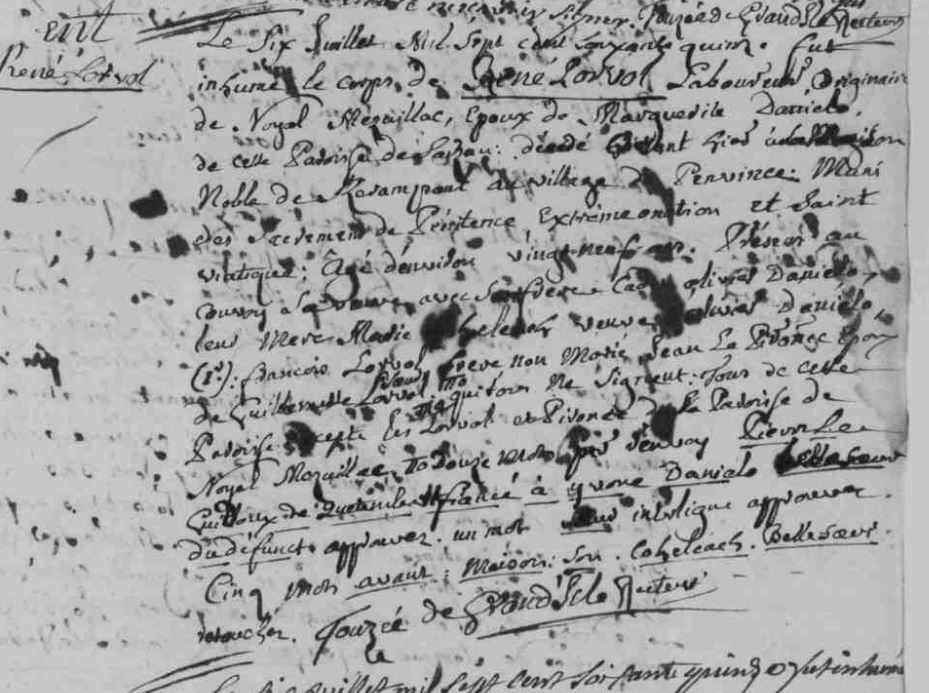 signer. Jouzée de Grand'Isle Recteur
ent
René Lorvol
Le Six Juillet Mil Sept cent soixante quinze. fut
inhumé le corps de René Lorvol Laboureur Originaire
de Noyal Muzillac, Epoux de Marguerite Daniélo,
de cette Paroisse de Sarzau: décédé hier
Noble de au village de Penvince: Muni
des Sacrement de Pénitence Extrême onction et Saint
viatique: Agé d'environ vingt-neuf an. Présens au
convoy La veuve avec Son frère olivier Daniélo,
leur Mere Marie veuve olivier Daniélo,
(Ir): François Lorvol frere non Marié, Jean Le Pironec Epoux
de Guillemette Lorvol. Soeur qui tous Ne Signent: Tous de cette
Paroisse excepté les Lorvol et Pironec de La Paroisse de
Noyal Muzillac. convoy Pierre Le
Guilloux de fiancé à yvone Daniélo belle soeur
du défunct. approuver. un mot interligne approuver.
Cinq mots avant: Maison: Son. Cohéléach. Belle soeur.
retoucher. Jouzée de Grand'Isle Recteur
Le Six Juillet mil Sept cent Soixante quinze fut inhumé